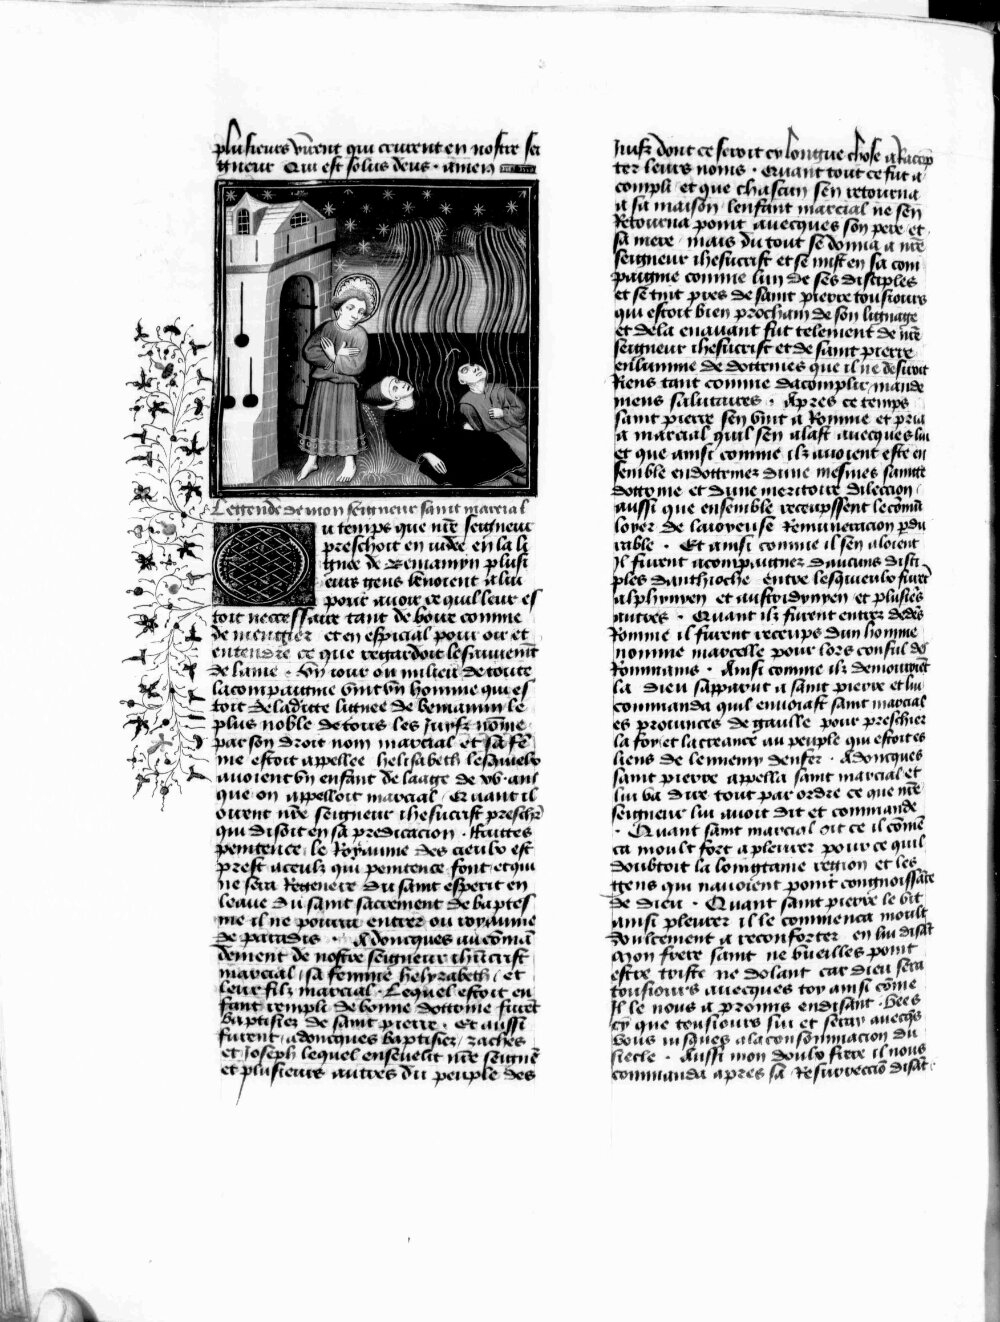 plusieurs virent qui crurent en nostre sei
gneur Qui est solus deus · amen
Legende de mon seigneur saint marcial
u temps que nr̄e seigneur
preschoit en iudee en la li
gnee de Beniamyn plusi
eurs gens venoient a lui
pour auoir ce quil leur es
toit neccessaire tant de boire comme
de mengier et en especial pour oir et
entendre ce que regardoit le sauuemēt
de lame · Vn iour ou milieu de toute
la compaignie vint vn homme qui es
toit de la dicte lignee de beniamin le
plus noble de tous les Juifz nōme
par son droit nom marcial et sa fē
me estoit appellee helisabeth lesquielx
auoient vn enfant de laage de xv · ans
que on appelloit marcial / Quant il
oirent nr̄e seigneur ihesucrist preschr̄
qui disoit en sa predicacion · ffaittes
penitence le Royaume des cieulx est
prest a ceulx qui penitence font et qui
ne sera Regenere du saint esperit en
leaue du saint sacrement de baptes
me il ne pourra entrer ou royaume
de paradis · Adoncques au cōmā
dement de nostre seigneur ihūcrist
marcial / sa femme helyzabeth / et
leur filz marcial · Lequel estoit en
fant rempli de bonne doctrine furēt
baptisiez de saint pierre · Et aussi
furent / adoncques baptisiez / zachee
et Joseph lequel enseuelit nr̄e seignr̄
et plusieurs autres du peuple des
Juifz dont ce seroit cy longue chose a Racōp
ter leurs noms · Quant tout ce fut a
compli / et que chascun sen retourna
a sa maison / lenfant marcial ne sen
Retourna point auecques son pere et
sa mere / mais du tout se donna a nr̄e
seigneur ihesucrist et se mist en sa com
paignie comme lun de ses disciples
et se tint pres de saint pierre tousiours
qui estoit bien prochain de son lignage
et de la en auant fut telement de nr̄e
seigneur ihesucrist et de saint pierre
enlumine de doctrines que il ne desiroit
Riens tant comme dacomplir / mande
mens salutaires · Apres ce temps
saint pierre sen vint a Romme et pria
a marcial quil sen alast auecques lui
et que ainsi comme ilz auoient este en
semble endoctrinez dune mesmes saincte
doctrine et dune meritoire dileccion /
aussi que ensemble receupssent le cōmū
loyer de la ioyeuse Remuneracion pdu
rable · Et ainsi comme il sen aloient
Jl furent acompaignez daucuns disci
ples danthioche entre lesquieulx furēt
alphynyen et austridynyen et plusiers
autres · Quant ilz furent entrez dedēs
Romme il furent receups dun homme
nomme marcelle pour lors consul des
Rommains · Ainsi comme ilz demouroiēt
la dieu sapparut a saint pierre et lui
commanda quil enuoiast saint marcial
es prouinces de gaulle pour preschier
la foy et la creance au peuple qui estoit es
liens de lennemy denfer · Adoncques
saint pierre appella saint marcial et
lui va dire tout par ordre ce que nr̄e
seigneur lui auoit dit et commande
· Quant saint marcial oit ce il cōmē
ca moult fort a pleurer pour ce quil
doubtoit la loingtaine region et les
gens qui nauoient point congnoissāce
de dieu · Quant saint pierre le vit
ainsi pleurer il le commenca moult
doulcement a reconforter en lui disāt
Mon frere saint ne vueilles point
estre triste ne dolant car dieu sera
tousiours auecques toy ainsi cōme
Jl le nous a promis en disant · Vees
cy que tousiours sui et seray auecqs
vous iusques a la consommacion du
siecle · Aussi mon doulx frere il nous
commanda apres sa Resurrecciō disāt ·